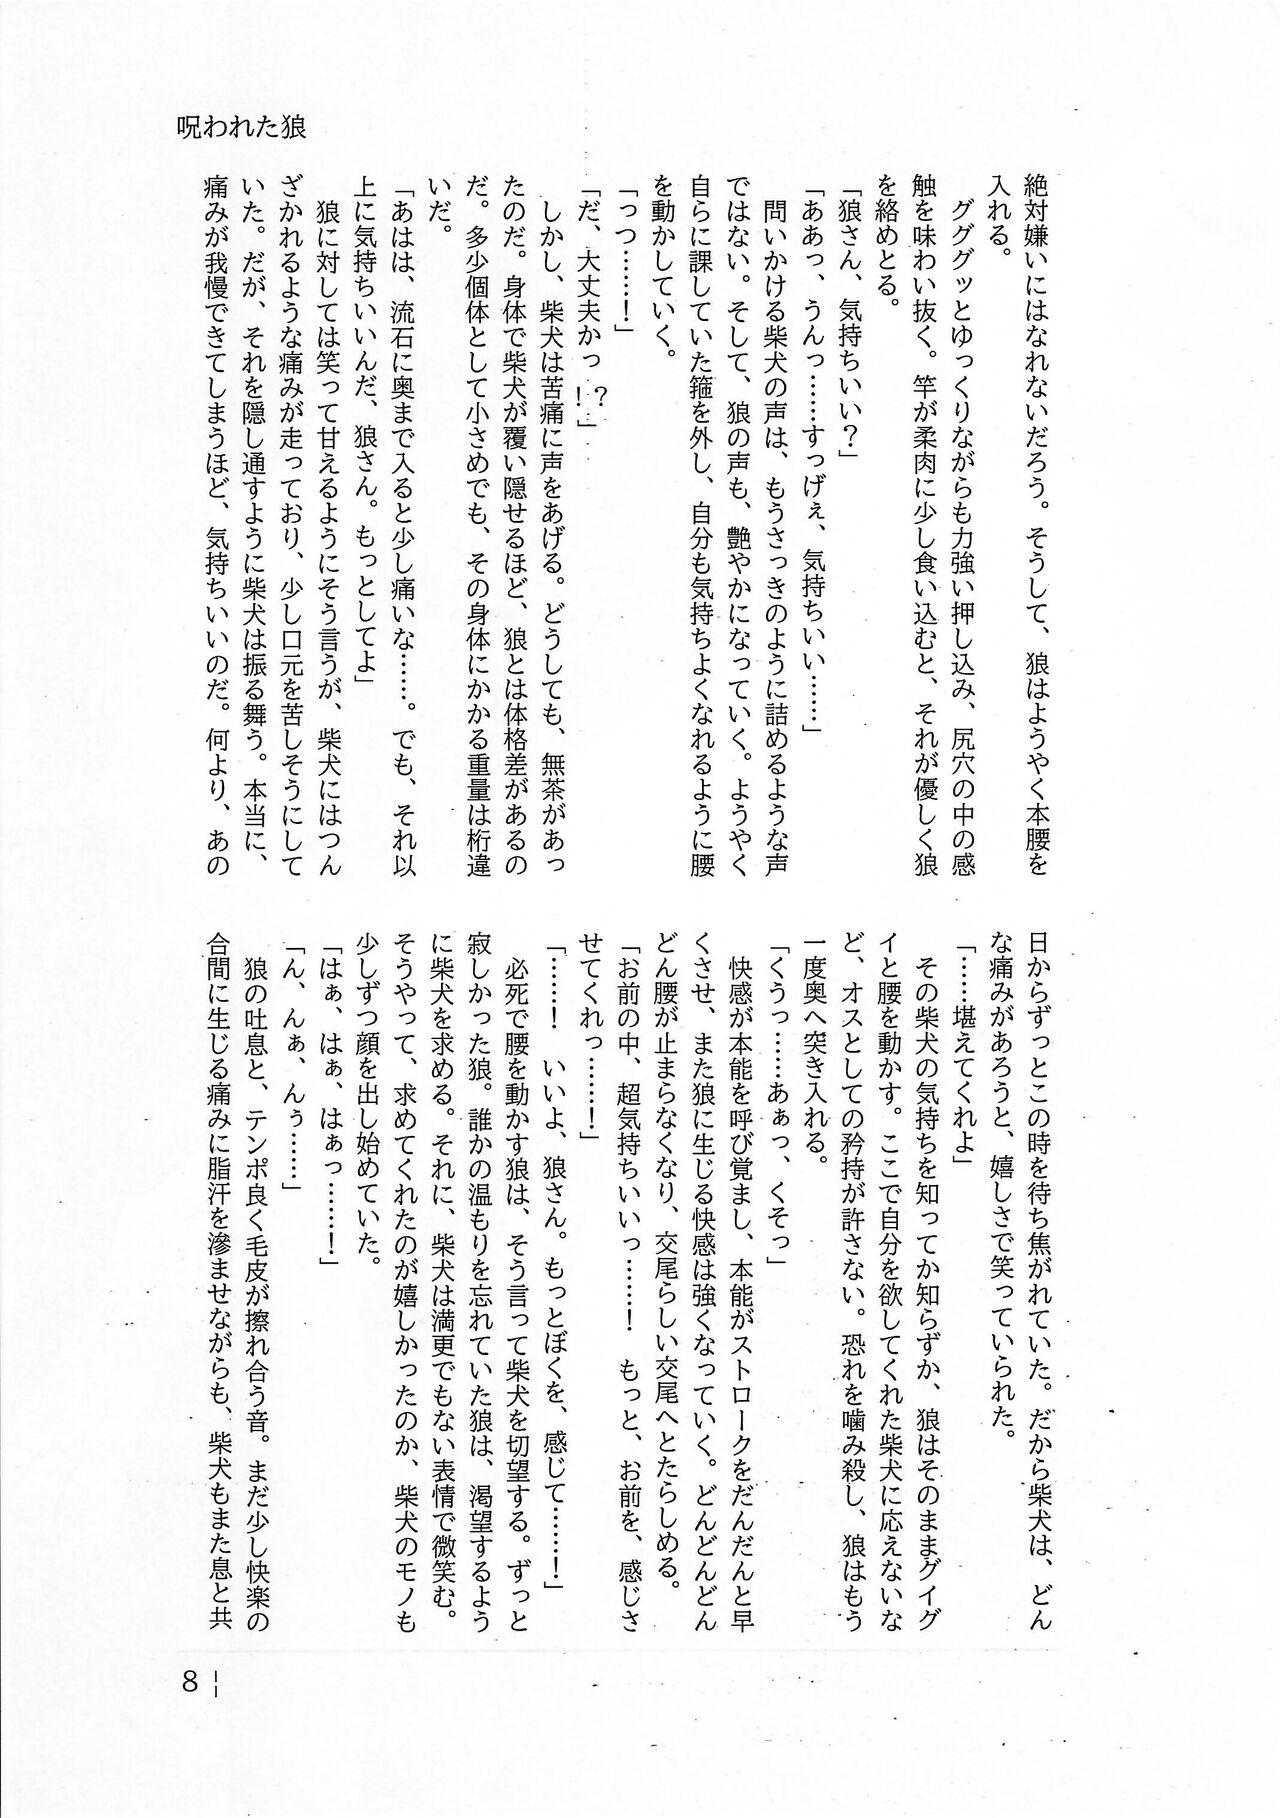 呪われた狼
絶対嫌いにはなれないだろう。そうして、狼はようやく本腰を
入れる。
　グググッとゆっくりながらも力強い押し込み、尻穴の中の感
触を味わい抜く。竿が柔肉に少し食い込むと、それが優しく狼
を絡めとる。
「狼さん、気持ちいい？」
「ああっ、うんっ……すっげぇ、気持ちいい……」
　問いかける柴犬の声は、もうさっきのように詰めるような声
ではない。そして、狼の声も、艶やかになっていく。ようやく
自らに課していた箍を外し、自分も気持ちよくなれるように腰
を動かしていく。
「っつ……！」
「だ、大丈夫かっ！？」
　しかし、柴犬は苦痛に声をあげる。どうしても、無茶があっ
たのだ。身体で柴犬が覆い隠せるほど、狼とは体格差があるの
だ。多少個体として小さめでも、その身体にかかる重量は桁違
いだ。
「あはは、流石に奥まで入ると少し痛いな……。でも、それ以
上に気持ちいいんだ、狼さん。もっとしてよ」
　狼に対しては笑って甘えるようにそう言うが、柴犬にはつん
ざかれるような痛みが走っており、少し口元を苦しそうにして
いた。だが、それを隠し通すように柴犬は振る舞う。本当に、
痛みが我慢できてしまうほど、気持ちいいのだ。何より、あの
日からずっとこの時を待ち焦がれていた。だから柴犬は、どん
な痛みがあろうと、嬉しさで笑っていられた。
「……堪えてくれよ」
　その柴犬の気持ちを知ってか知らずか、狼はそのままグイグ
イと腰を動かす。ここで自分を欲してくれた柴犬に応えないな
ど、オスとしての矜持が許さない。恐れを噛み殺し、狼はもう
一度奥へ突き入れる。
「くうっ……あぁっ、くそっ」
　快感が本能を呼び覚まし、本能がストロークをだんだんと早
くさせ、また狼に生じる快感は強くなっていく。どんどんどん
どん腰が止まらなくなり、交尾らしい交尾へとたらしめる。
「お前の中、超気持ちいいっ……！　もっと、お前を、感じさ
せてくれっ……！」
「……！　いいよ、狼さん。もっとぼくを、感じて……！」
　必死で腰を動かす狼は、そう言って柴犬を切望する。ずっと
寂しかった狼。誰かの温もりを忘れていた狼は、渇望するよう
に柴犬を求める。それに、柴犬は満更でもない表情で微笑む。
そうやって、求めてくれたのが嬉しかったのか、柴犬のモノも
少しずつ顔を出し始めていた。
「はぁ、はぁ、はぁっ……！」
「ん、んぁ、んぅ……」
　狼の吐息と、テンポ良く毛皮が擦れ合う音。まだ少し快楽の
合間に生じる痛みに脂汗を滲ませながらも、柴犬もまた息と共
8